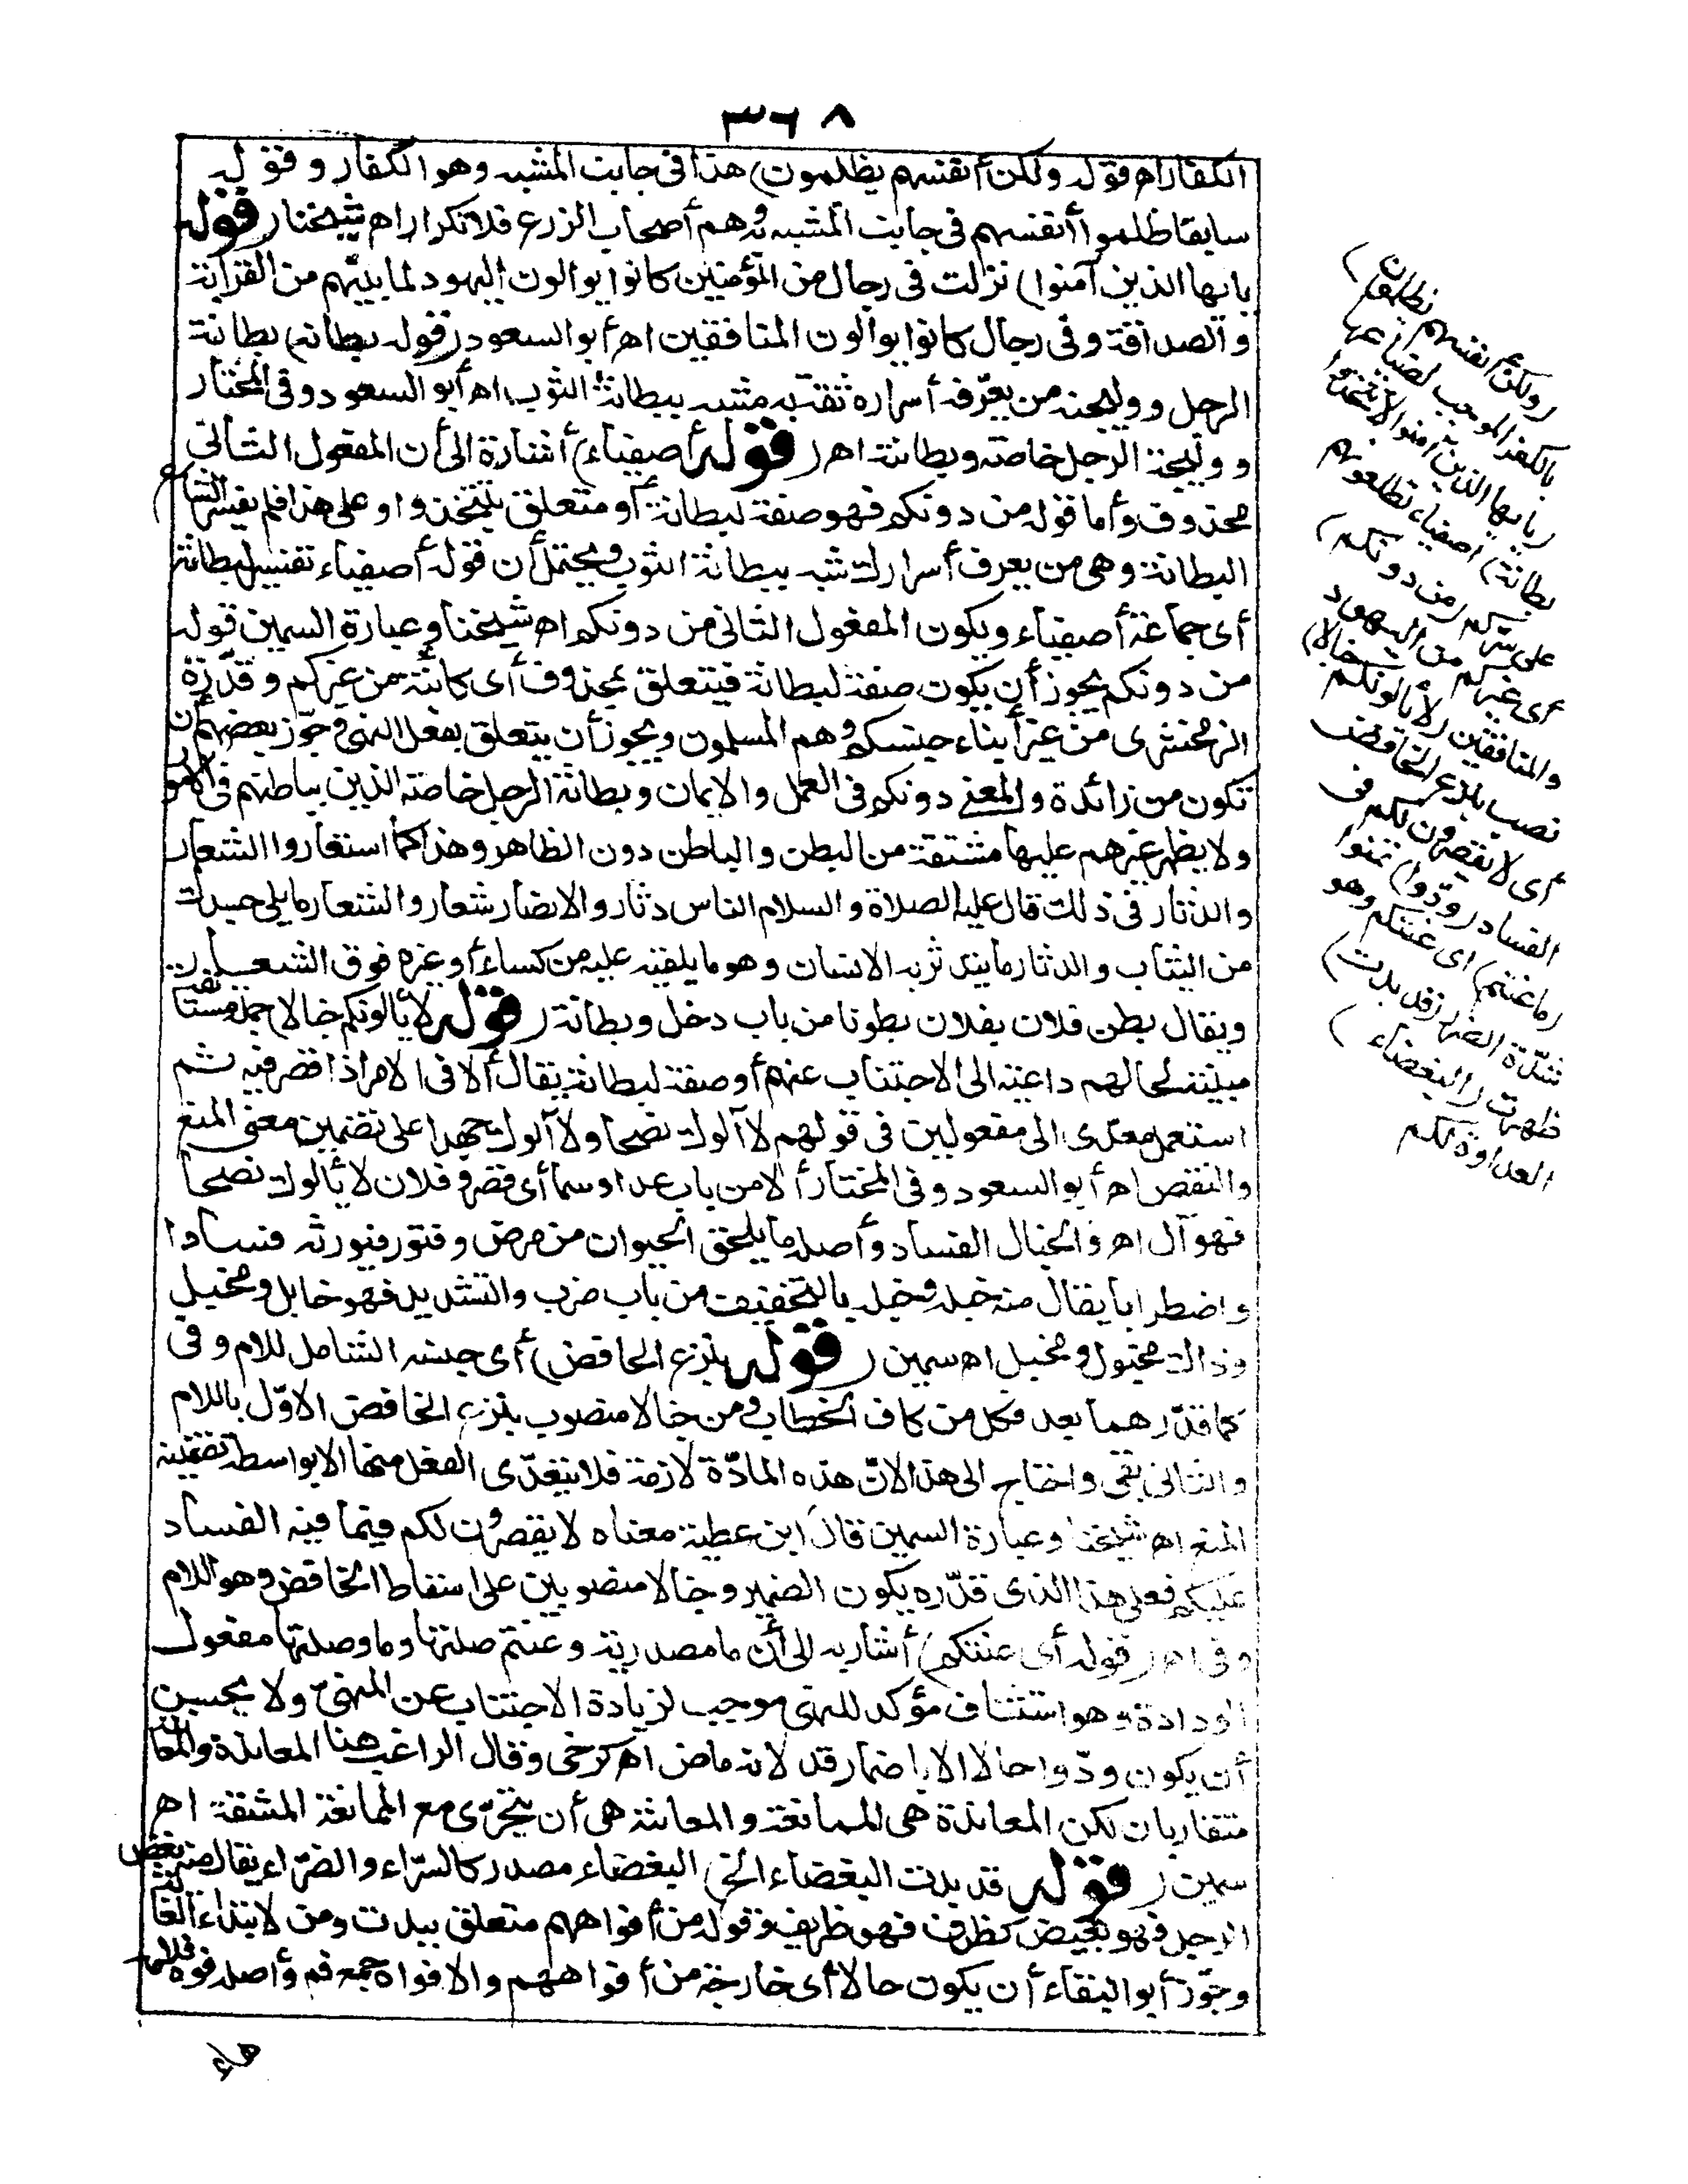 ٣٦٨
الكفار اه قوله ولكن أنفسهم يظلمون) هذا في جانب المشبه وهو الكفار وقوله
سابقا ظلموا أنفسهم في جانب المشبه به وهم أصحاب الزرع فلا تكرار اه شيخنا (قوله
يا يها الذين آمنوا) نزلت في رجال من المؤمنين كانوا يوالون اليهود لما بينهم من القرابة
والصداقة وفى رجال كانوا يوالون المنافقين اه أبو السعود (قوله بطانة) بطانة
الرجل ووليجته من يعرّفه أسراره ثقة به مشبه ببطانة الثوب اه أبو السعود وفى المختار
ووليجة الرجل خاصته وبطانته اه (قوله أصفياء) أشارة الى أن المفعول الثانى
محذوف وأما قوله من دونكم فهو صفة لبطانة أو متعلق بتتخذوا وعلى هذا فلم يفسر الشارح
البطانة وهى من يعرف أسرارك شبه ببطانة الثوب ويحتمل أن قوله أصفياء تفسير لبطانة
أى جماعة أصفياء ويكون المفعول الثانى من دونكم اه شيخنا وعبارة السمين قوله
من دونكم يجوز أن يكون صفة لبطانة فيتعلق بمحذوف أى كائنة من غيركم وقدّره
الزمخشرى من غير أبناء جنسكم وهم المسلمون ويجوز أن يتعلق بفعل النهى وجوّز بعضهم أن
تكون من زائدة والمعنى دونكم فى العمل والايمان وبطانة الرجل خاصته الذين يباطنهم فى الامور
ولا يظهر غيرهم عليها مشتقة من البطن والباطن دون الظاهر وهذا كما استعاروا الشعار
والدثار فى ذلك قال عليه الصلاة والسلام الناس دثار والانصار شعار والشعار ما يلى جسدك
من الثياب والدثار ما يتدثر به الانسان وهو ما يلقيه عليه من كساء أو غيره فوق الشعار
ويقال بطن فلان بفلان بطونا من باب دخل وبطانة (قوله لا يألونكم خبالا) جملة مستأنفة
مبينة لحالهم داعية الى الاجتناب عنهم أو صفة لبطانة يقال ألا فى الامر اذا قصر فيه ثم
استعمل معدى الى مفعولين فى قولهم لا آلوك نصحا ولا آلوك جهدا على تضمين معنى المنع
والنقص اه أبو السعود وفى المختار ألا من باب عدا وسما أى قصر وفلان لا يألوك نصحا
فهو آل اه والخبال الفساد وأصله ما يلحق الحيوان من مرض وفتور فيورثه فسادا
واضطرابا يقال منه خبله وخبله بالتخفيف من باب ضرب والتشديد فهو خابل ومخبل
وذاك مخبول ومخبل اه سمين (قوله بنزع الخافض) أى جنسه الشامل للام وفى
كما قدّرهما بعد فكل من كاف الخطاب ومن خبالا منصوب بنزع الخافض الاوّل باللام
والثانى بفى واحتاج الى هذا لانّ هذه المادّة لازمة فلا يتعدّى الفعل منها الا بواسطة تضمينه
المنع اه شيخنا وعبارة السمين قال ابن عطية معناه لا يقصرون لكم فيما فيه الفساد
عليكم فعلى هذا الذى قدّره يكون الضمير وخبالا منصوبين على اسقاط الخافض وهو اللام
وفى اه (قوله أى عنتكم) أشار به الى أن ما مصدرية وعنتم صلتها وما وصلتها مفعول
الودادة وهو استئناف مؤكد للنهى موجب لزيادة الاجتناب عن المنهىّ ولا يحسن
أن يكون ودّوا حالا الا باضمار قد لانه ماض اه كرخى وقال الراغب هنا المعاندة والمعانتة
متقاربان لكن المعاندة هى الممانعة والمعانتة هى أن يتحرّى مع الممانعة المشقة اه
سمين (قوله قد بدت البغضاء الخ) البغضاء مصدر كالسرّاء والضرّاء يقال منه بغض
الرجل فهو بغيض كظرف فهو ظريف وقوله من أفواههم متعلق ببدت ومن لابتداء الغاية
وجوّز أبو البقاء أن يكون حالا أى خارجة من أفواههم والافواه جمع فم وأصله فوه فلامه
هاء
(ولكن أنفسهم يظلمون)
بالكفر الموجب لضياعها
(يا يها الذين آمنوا لا تتخذوا
بطانة) أصفياء تطلعونهم
على سركم (من دونكم)
أى غيركم من اليهود
والمنافقين (لا يألونكم خبالا)
نصب بنزع الخافض
أى لا يقصرون لكم فى
الفساد (ودّوا) تمنوا
(ما عنتم) أى عنتكم وهو
شدّة الضرر (قد بدت)
ظهرت (البغضاء)
العداوة لكم